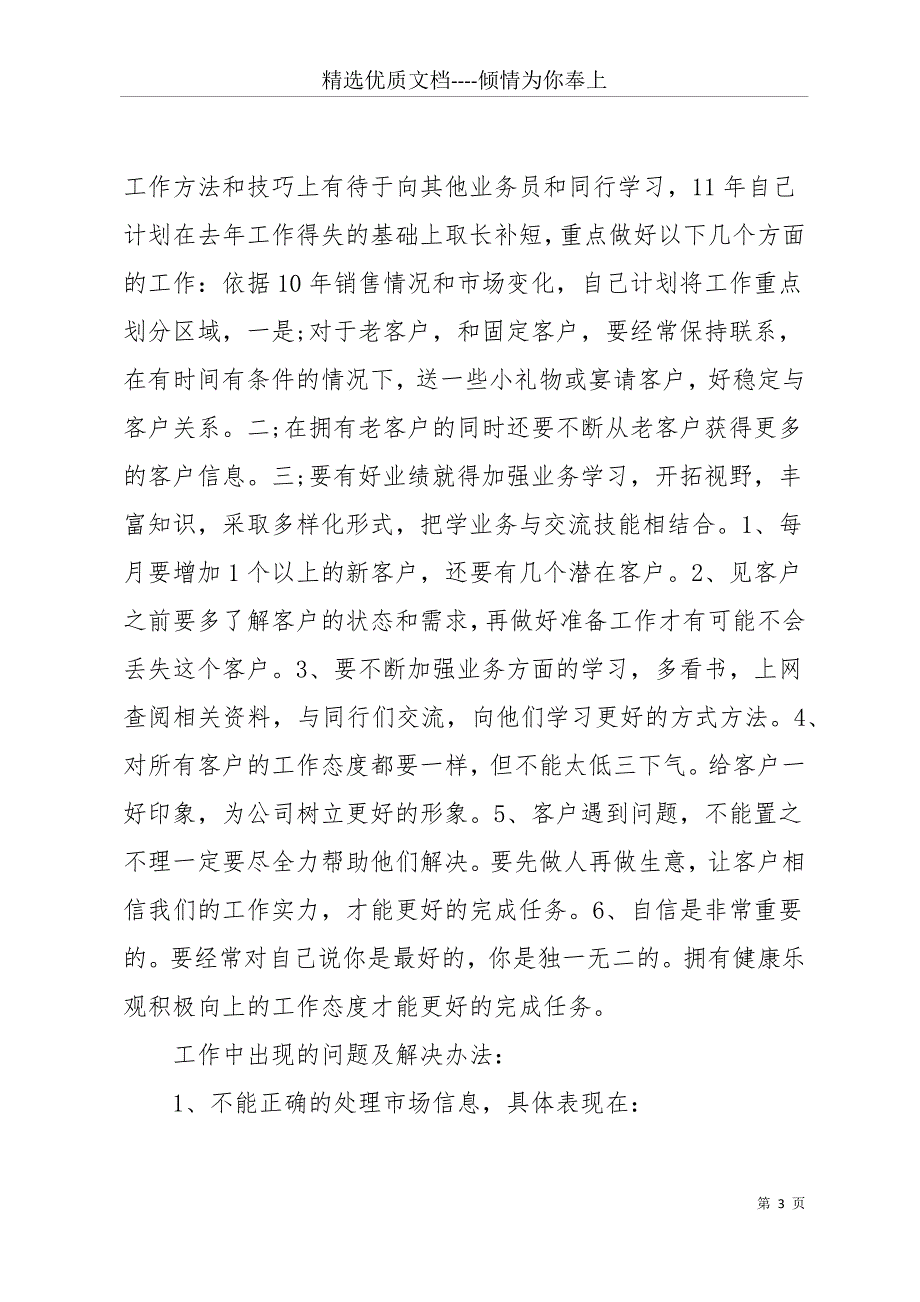 精选优质文档----倾情为你奉上
工作方法和技巧上有待于向其他业务员和同行学习，11 年自己
计划在去年工作得失的基础上取长补短，重点做好以下几个方面
的工作：依据 10 年销售情况和市场变化，自己计划将工作重点
划分区域，一是;对于老客户，和固定客户，要经常保持联系，
在有时间有条件的情况下，送一些小礼物或宴请客户，好稳定与
客户关系。二;在拥有老客户的同时还要不断从老客户获得更多
的客户信息。三;要有好业绩就得加强业务学习，开拓视野，丰
富知识，采取多样化形式，把学业务与交流技能相结合。1、每
月要增加 1 个以上的新客户，还要有几个潜在客户。2、见客户
之前要多了解客户的状态和需求，再做好准备工作才有可能不会
丢失这个客户。3、要不断加强业务方面的学习，多看书，上网
查阅相关资料，与同行们交流，向他们学习更好的方式方法。4、
对所有客户的工作态度都要一样，但不能太低三下气。给客户一
好印象，为公司树立更好的形象。5、客户遇到问题，不能置之
不理一定要尽全力帮助他们解决。要先做人再做生意，让客户相
信我们的工作实力，才能更好的完成任务。6、自信是非常重要
的。要经常对自己说你是最好的，你是独一无二的。拥有健康乐
观积极向上的工作态度才能更好的完成任务。
工作中出现的问题及解决办法：
1、不能正确的处理市场信息，具体表现在：
第 3 页